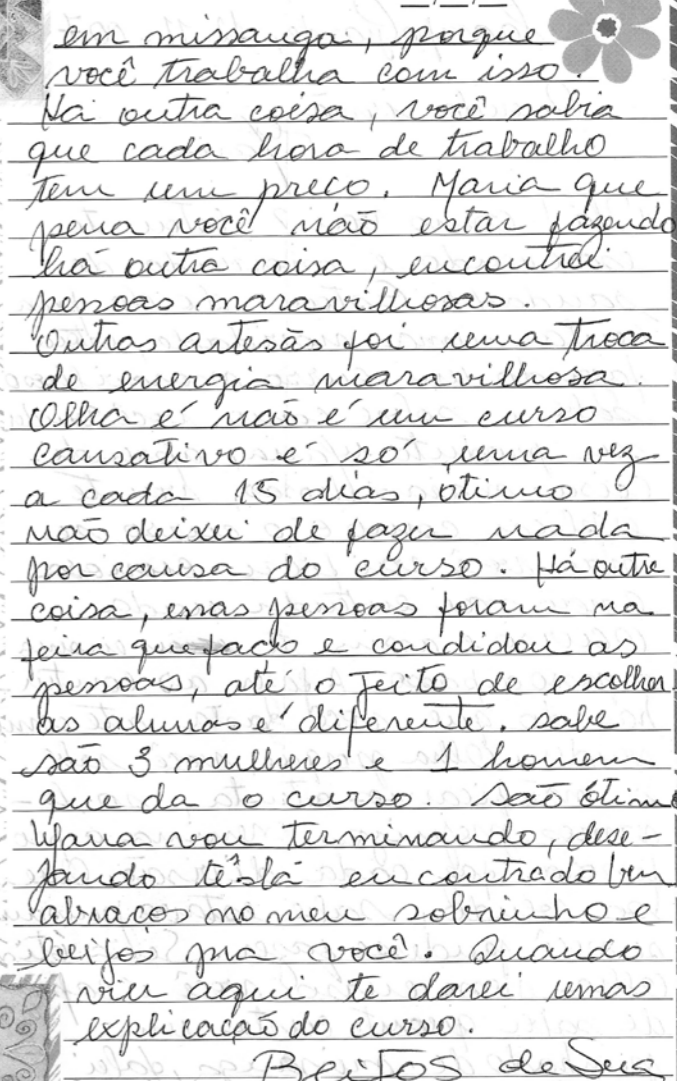 em missanga, porque
você trabalha com isso.
Há outra coisa, você sabia
que cada hora de trabalho
tem um preço. Maria que
pena você não estar fazendo
há outra coisa, encontrei
pessoas maravilhosas.
Outras artesãs foi uma troca
de energia maravilhosa.
Olha é não é um curso
cansativo é só uma vez
a cada 15 dias, ótimo
não deixei de fazer nada
por causa do curso. Há outra
coisa, essas pessoas foram na
feira que faço e condidou as
pessoas, até o jeito de escolher
as alunas é diferente. sabe
são 3 mulheres e 1 homem
que da o curso. São ótimo
Maria vou terminando, dese-
jando têsla encontrado bem
abraços no meu sobrinho e
beijos pra você. Quando
vier aqui te darei umas
explicação do curso.
Beijos de Sua